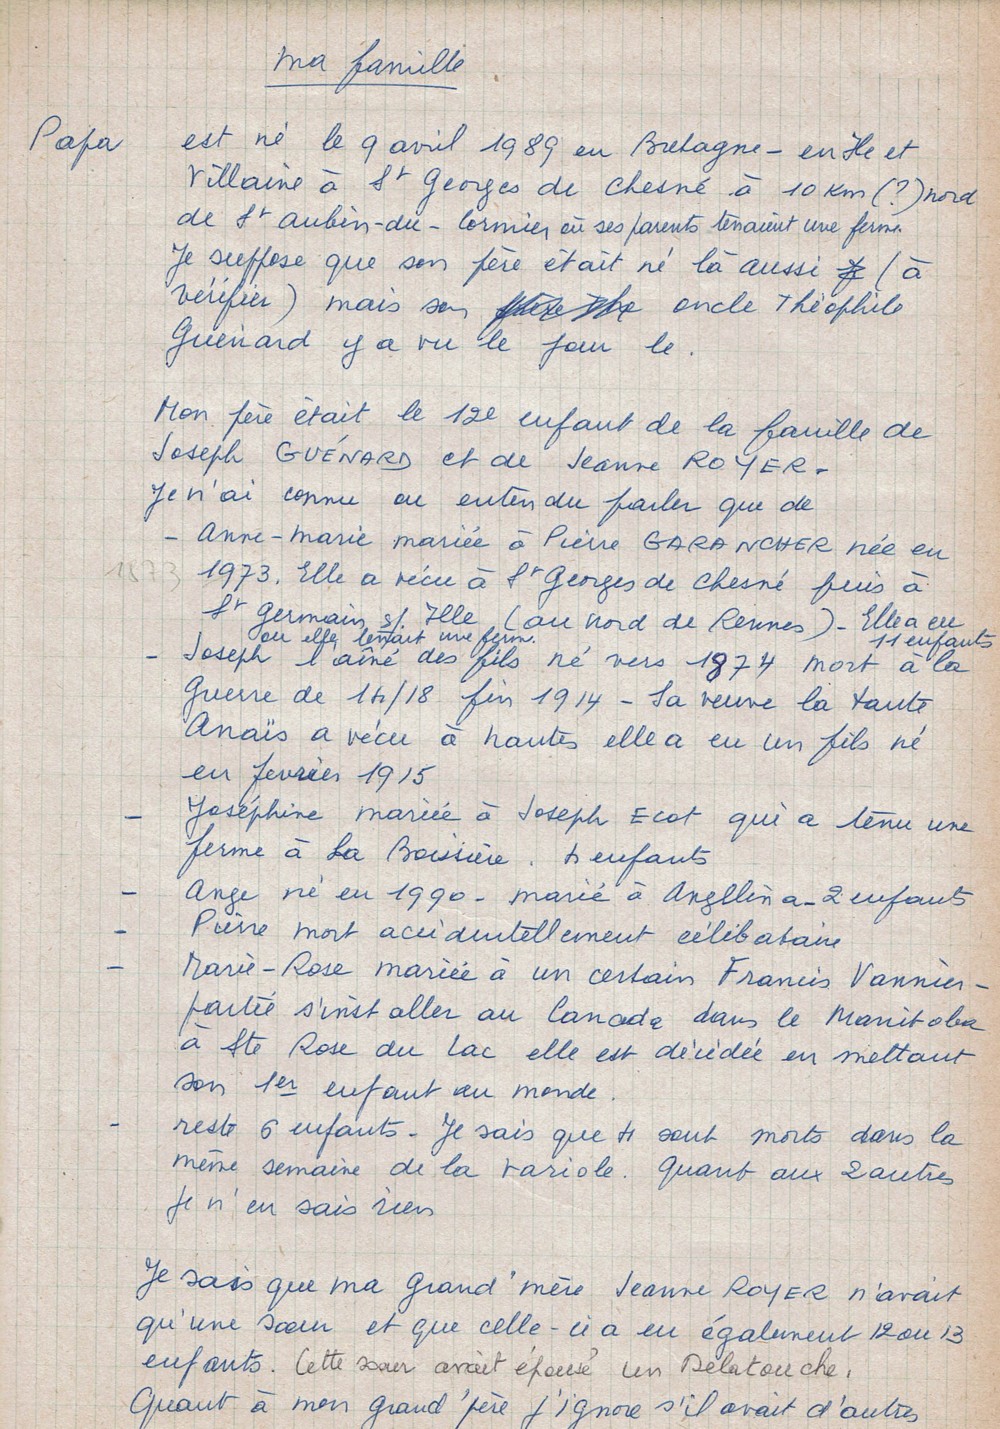 Ma famille
Papa est né le 9 avril 1989 en Bretagne - en Ile et
Villaine à St Georges de Chesné à 10 Km (?) nord
de St Aubin-du-Cormier où ses parents tenaient une ferme.
Je suppose que son père était né là aussi (à
vérifier) mais son oncle Théophile
Guénard y a vu le jour le .
Mon père était le 12e enfant de la famille de
Joseph GUÉNARD et de Jeanne ROYER.
Je n'ai connu ou entendu parler que de
- Anne-Marie mariée à Pierre GARANCHER née en
1873 1973. Elle a vécu à St Georges de Chesné puis à
St Germain s/. Ille (au nord de Rennes) - Elle a eu
où elle tenait une ferme. 11 enfants
- Joseph l'aîné des fils né vers 1874 mort à la
Guerre de 14/18 fin 1914 - Sa veuve la tante
Anaïs a vécu à Nantes elle a eu un fils né
en février 1915
- Joséphine mariée à Joseph Ecot qui a tenu une
ferme à La Boissière. 4 enfants
- Ange né en 1990 - marié à Angllina - 2 enfants
- Pierre mort accidentellement célibataire
- Marie-Rose mariée à un certain Francis Vannier -
partie s'installer au Canada dans le Manitoba
à Ste Rose du Lac elle est décédée en mettant
son 1er enfant au monde.
- reste 6 enfants - Je sais que 4 sont morts dans la
même semaine de la variole. Quant aux 2 autres
je n'en sais rien
Je sais que ma Grand'mère Jeanne ROYER n'avait
qu'une sœur et que celle-ci a eu également 12 ou 13
enfants. Cette sœur avait épousé un Delatouche.
Quant à mon grand'père j'ignore s'il avait d'autres